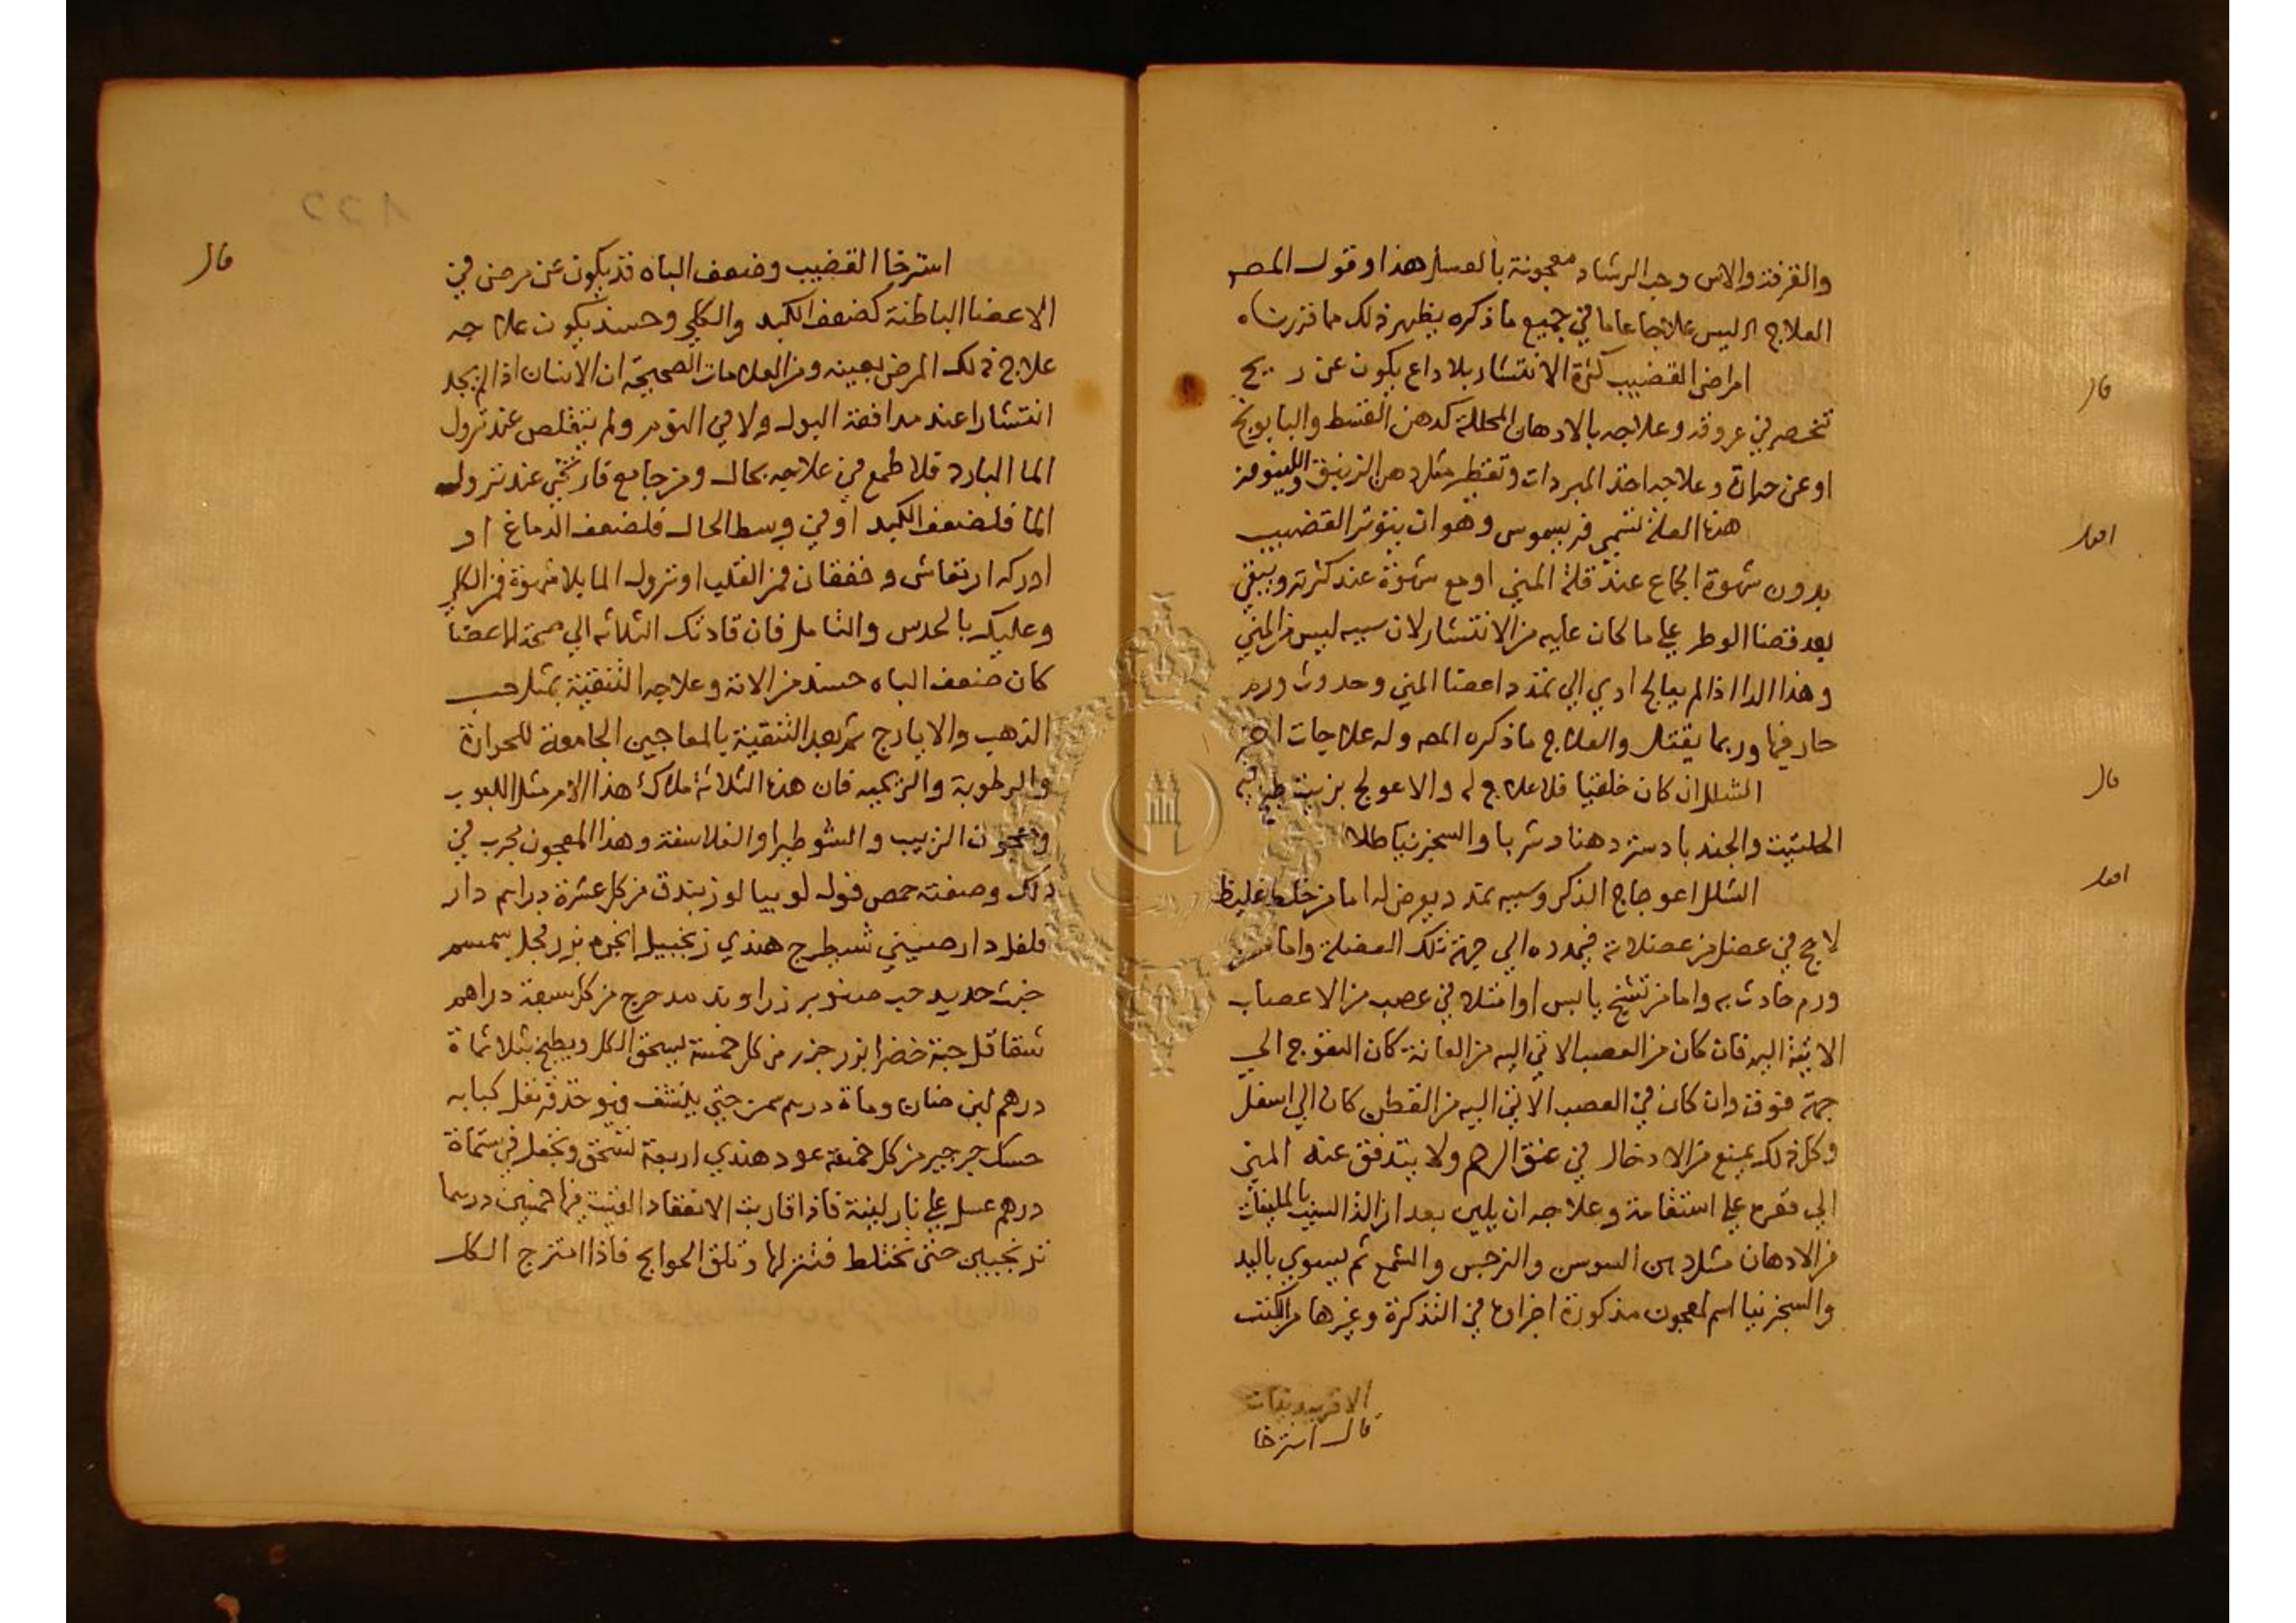 والقرفة والاس وحب الرشاد معجونة بالعسل هذا وقول المصـ
العلاج الليس علاجا عاما في جميع ما ذكره يظهر ذلك مما قررناه
قال
امراض القضيب كثرة الانتشار بلا داع يكون عن ريح
تنحصر في عروقه وعلاجه بالادهان المحللة كدهن القسط والبابونج
او عن حرارة وعلاجه اخذ المبردات وتقطير مثل دهن الزنبق واللينوفر
اقول
هذه العلة تسمى فريسموس وهو ان يتوتر القضيب
بدون شهوة الجماع عند قلة المني او مع شهوة عند كثرته ويبقى
بعد قضا الوطر على ما كان عليه من الانتشار لان سببه ليس من المني
وهذا الدا اذا لم يعالج ادي الي تمدد اعضا المني وحدوث ورم
حار فيها وربما يقتل والعلاج ما ذكره المصـ وله علاجات اخر
قال
الشلل ان كان خلقيا فلا علاج له والا عولج بزيت طبخ فيه
الحلتيت والجندبادستر دهنا وشربا والسجزنيا طلا
اقول
الشلل اعوجاج الذكر وسببه تمدد يعرض له اما من خلط غليظ
لاحج في عضل من عضلاته فيمدده الي جهة تلك العضلة واما من
ورم حادث به واما من تشنج يابس او امتلا في عصب من الاعصاب
الاتية اليه فان كان من العصب الاتي اليه من العانة كان التعوج الي
جهة فوق وان كان في العصب الاتي اليه من القطن كان الي اسفل
وكل ذلك يمنع من الادخال في عنق الرحم ولا يتدفق عنه المني
الي قعره على استقامة وعلاجه ان يلين بعد ازالة السبب بالملينات
من الادهان مثل دهن السوسن والنرجس والشمع ثم يسوي باليد
والسجزنيا اسم لمعجون مذكورة اجزاوه في التذكرة وغيرها من الكتب
قال استرخا
قال
استرخا القضيب وضعف الباه قد يكون عن مرض في
الاعضا الباطنة كضعف الكبد والكلي وحينئذ يكون علاجه
علاج ذلك المرض بعينه ومن العلامات الصحيحة ان الانسان اذا لم يجد
انتشارا عند مدافعة البول ولا في النوم ولم يتقلص عند نزول
الما البارد فلا طمع في علاجه بحال ومن جامع فارتخي عند نزول
الما فلضعف الكبد او في وسط الحال فلضعف الدماغ او
ادركه ارتعاش وخفقان فمن القلب او نزول الما بلا شهوة فمن الكلي
وعليك بالحدس والتامل فان قادتك الثلاثه الي صحة الاعضا
كان ضعف الباه حينئذ من الالة وعلاجه التنقية بمثل حب
الذهب والايارج ثم بعد التنقية بالمعاجين الجامعة للحرارة
والرطوبة والريحيه فان هذه الثلاثة ملاك هذا الامر مثل اللبوب
ومعجون الزبيب والسوطيرا والفلاسفة وهذا المعجون مجرب في
ذلك وصفته حمص فوله لوبيا لوز بندق من كل عشرة دراهم دار
فلفل دارصيني شيطرج هندي زنجبيل انجره بزر فجل سمسم
خبث حديد حب صنوبر زراوند مدحرج من كل سبعة دراهم
شقاقل حبة خضرا بزر جزر من كل خمسة يسحق الكل ويطبخ بثلاثماة
درهم لبن ضان وماة درهم سمن حتي ينشف ويوخذ قرنفل كبابه
حسك جرجير من كل خمسة عود هندي اربعة تسحق وتجعل في ستماة
درهم عسل على نار لينة فاذا قاربت الانعقاد القيت فيها خمسين درهما
ترنجبين حتى تختلط فتنزلها وتلق الحوايج فاذا امتزج الكل